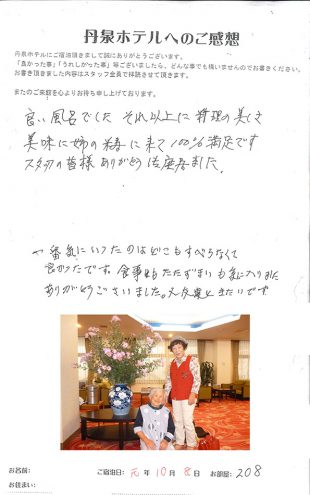 丹泉ホテルへのご感想
丹泉ホテルにご宿泊頂きまして誠にありがとうございます。
「良かった事」「うれしかった事」等ございましたら、どんな事でも構いませんのでお書きください。
お書き頂きました内容はスタッフ全員で拝読させて頂きます。
またのご来館を心よりお待ち申し上げております。
良い風呂でした それ以上に 料理の美しさ
美味に 姉の 寿に 来て 100%満足です
スタッフの皆様 ありがとう 御座居ました。
一番気にいったのはどこもすべらなくて
良かったです。食事もたたずまいも気に入りました
ありがとうございました。又友達と来たいです
お名前:
ご宿泊日: 元 年 10 月 8 日
お部屋: 208
お住まい: